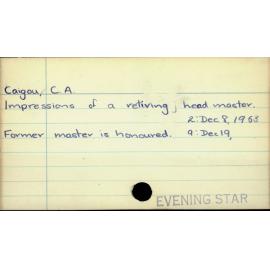 Caygou, C.A.
Impressions of a retiring, head master.
2: Dec 8, 1963
Former master is honoured. 9: Dec 19,
EVENING STAR